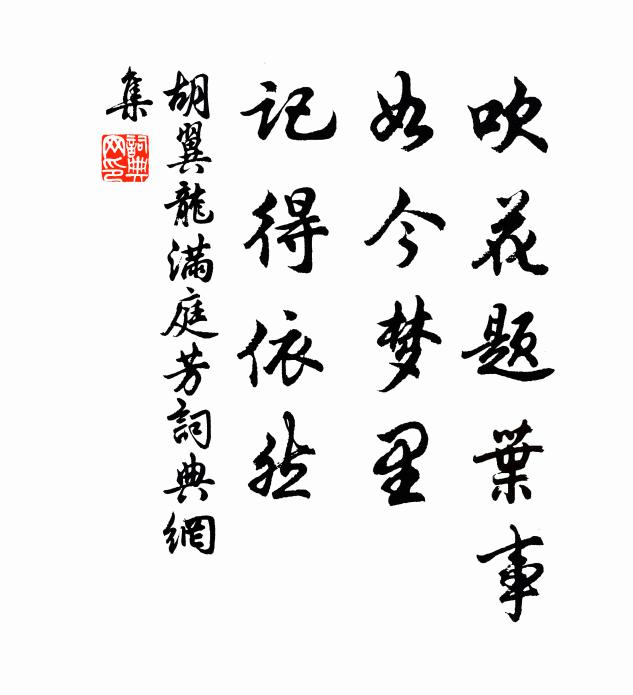 吹花题葉事
如今梦里
记得依然
胡翼龍满庭芳詞典網
集
詞典网印